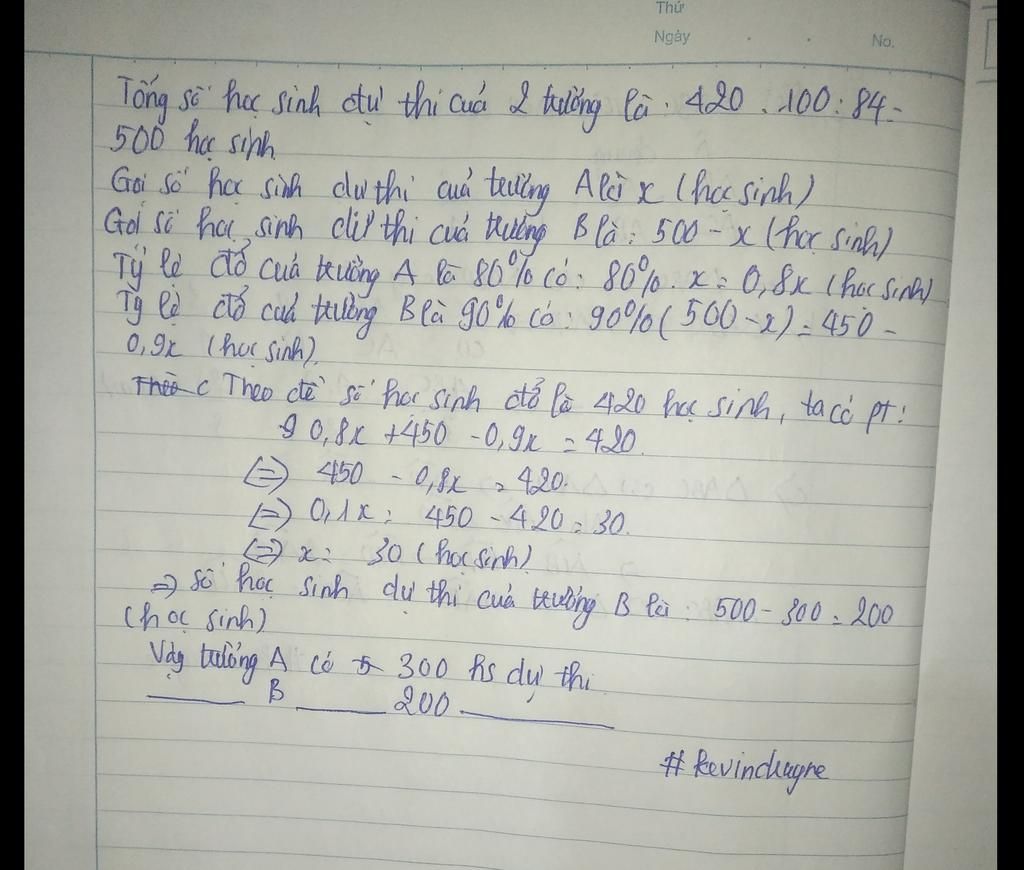 Thứ
Ngày . . No.
Tổng số học sinh dự thi của 2 trường là: 420 . 100 : 84 =
500 học sinh
Gọi số học sinh dự thi của trường A là x (học sinh)
Gọi số học sinh dự thi của trường B là: 500 - x (học sinh)
Tỷ lệ đỗ của trường A là 80% có: 80% . x = 0,8x (học sinh)
Tỷ lệ đỗ của trường B là 90% có: 90% (500 - x) = 450 -
0,9x (học sinh)
Theo c Theo đề số học sinh đỗ là 420 học sinh, ta có pt:
0,8x + 450 - 0,9x = 420
(=) 450 - 0,8x = 420.
(=) 0,1x = 450 - 420 = 30.
(=) x = 30 (học sinh)
=> số học sinh dự thi của trường B là: 500 - 300 = 200
(học sinh)
Vậy trường A có 300 hs dự thi
____ B ____ 200 ________